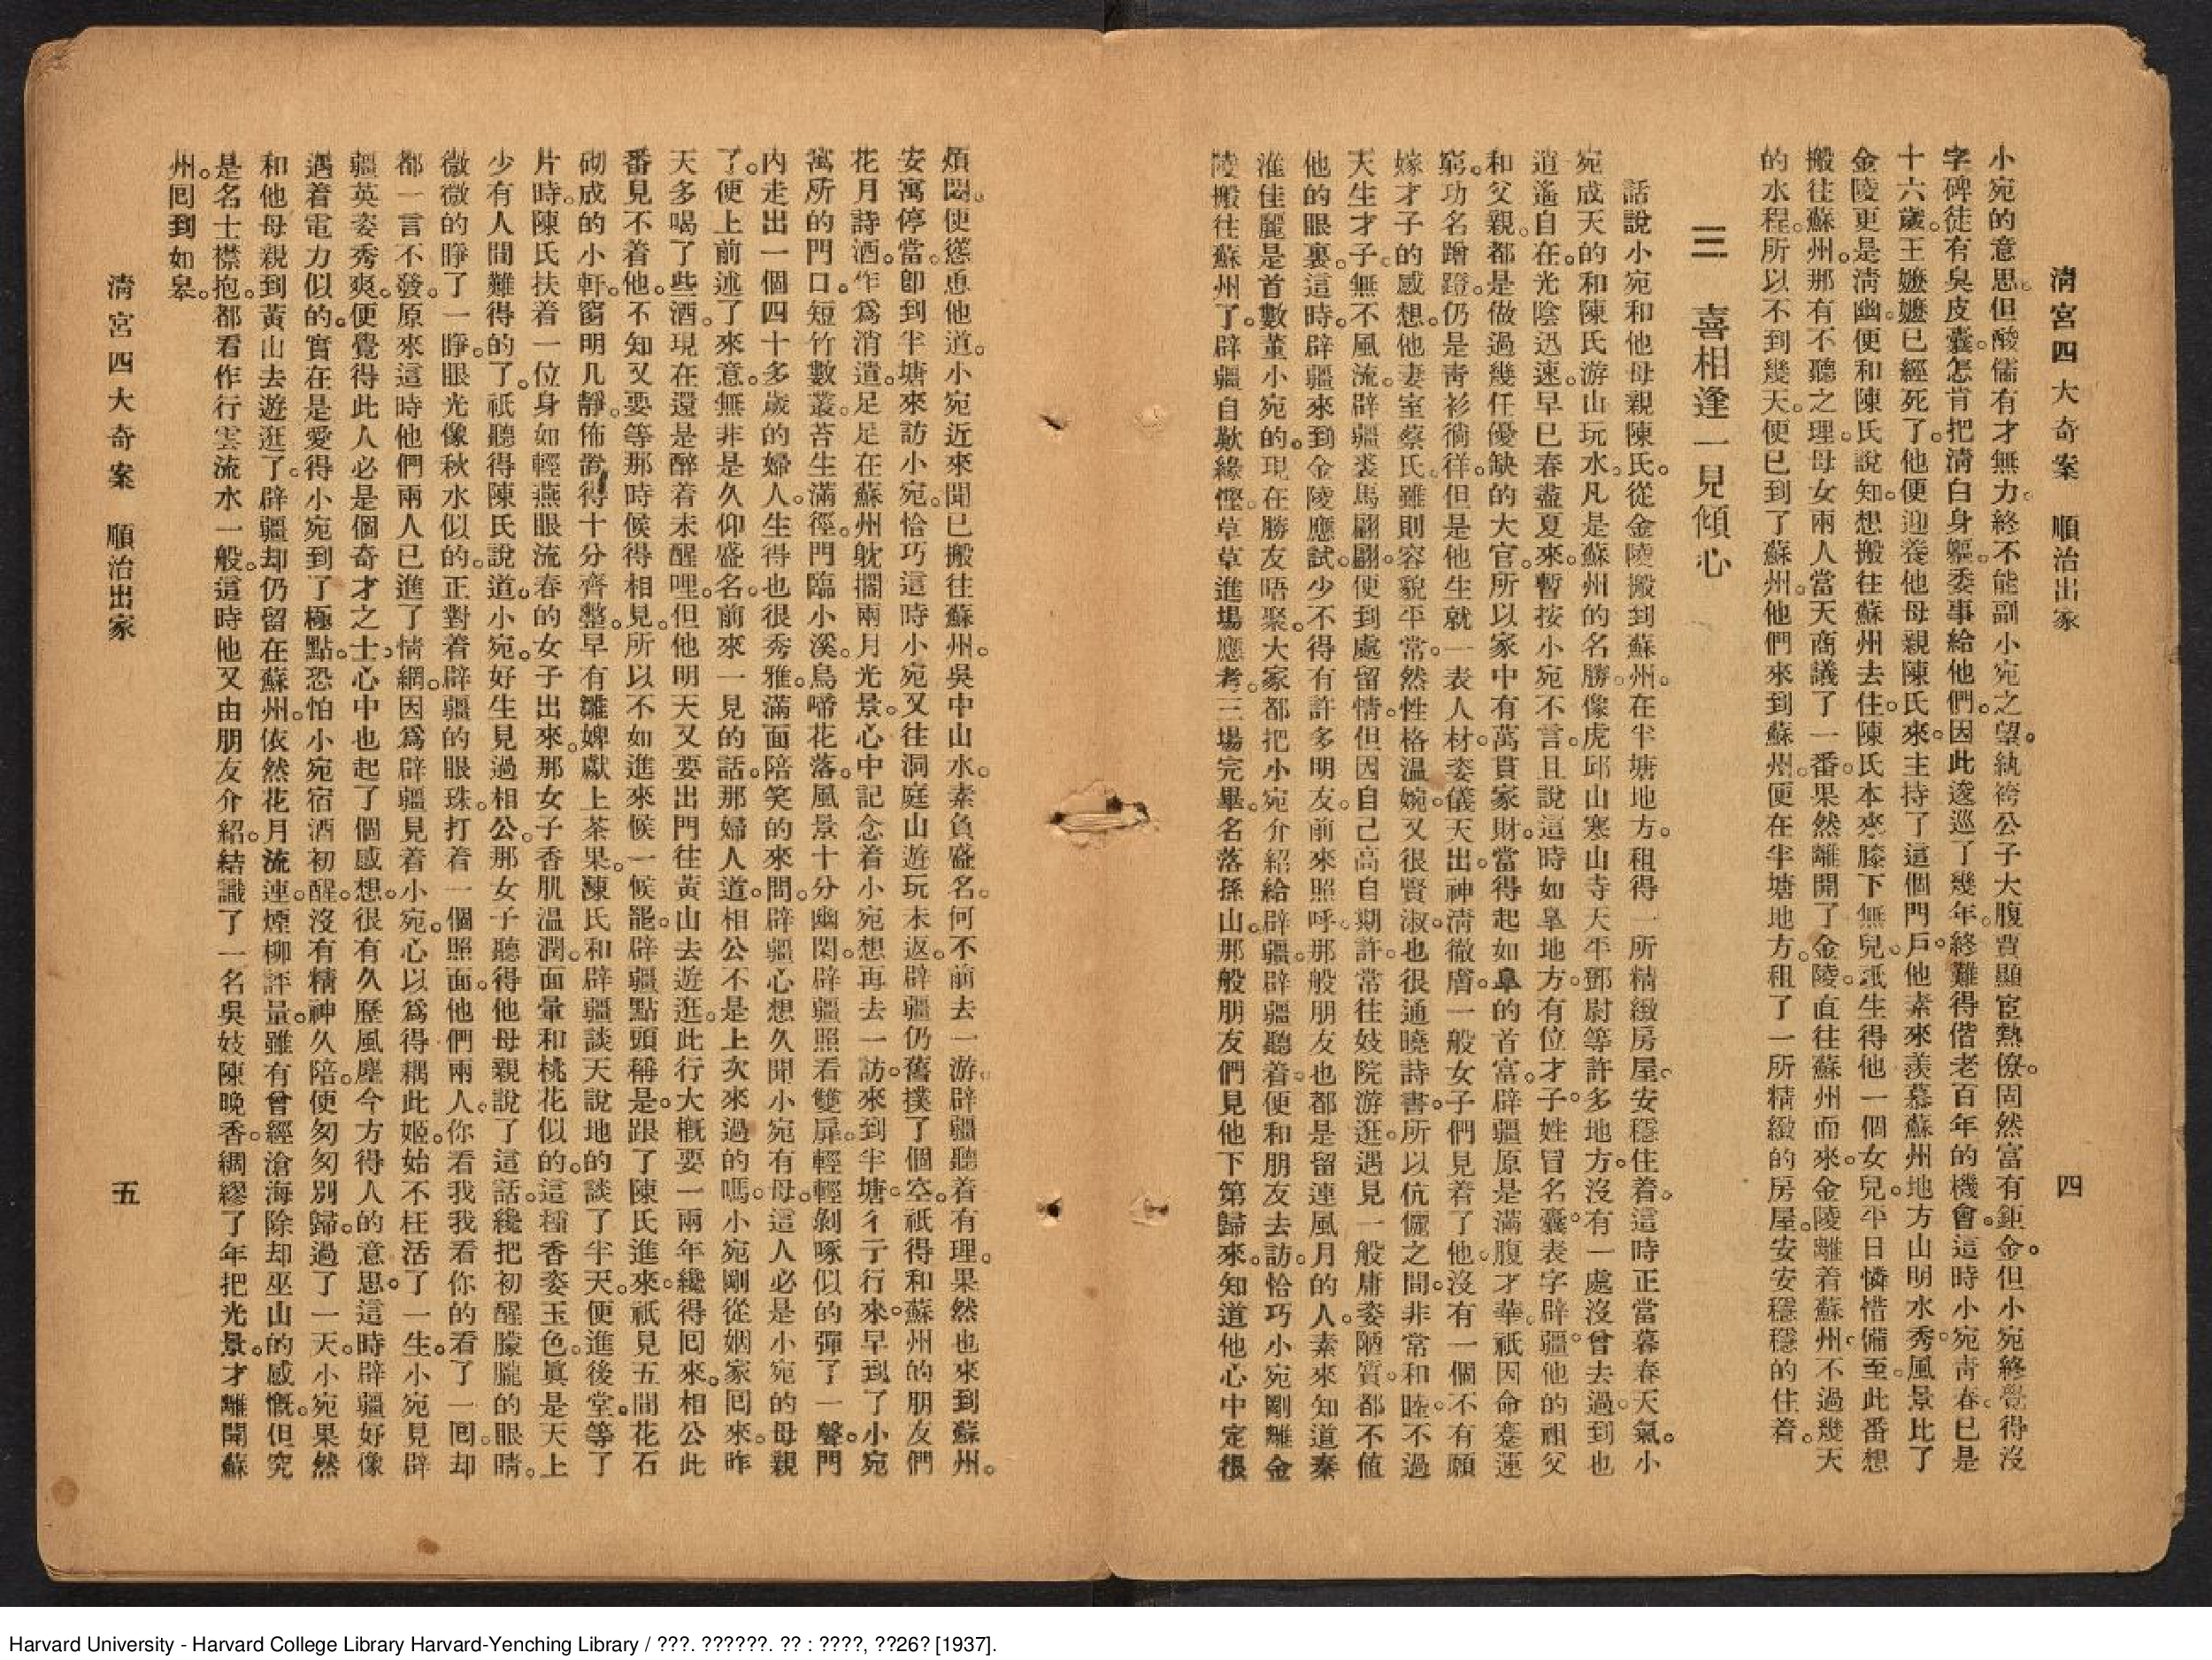 清宮四大奇案　順治出家
四
小宛的意思。但酸儒有才無力。終不能副小宛之望。紈袴公子大腹賈顯宦熱僚。固然富有鉅金。但小宛終覺得沒
字碑徒有臭皮囊。怎肯把淸白身軀。委事給他們。因此逡巡了幾年。終難得偕老百年的機會。這時小宛靑春。已是
十六歲。王嬷嬷已經死了。他便迎養他母親陳氏來。主持了這個門戶。他素來羨慕蘇州地方山明水秀。風景比了
金陵更是淸幽。便和陳氏說知。想搬往蘇州去住。陳氏本來膝下無兒。祇生得他一個女兒。平日憐惜備至。此番想
搬往蘇州。那有不聽之理。母女兩人當天商議了一番。果然離開了金陵。直往蘇州而來。金陵離着蘇州。不過幾天
的水程。所以不到幾天。便已到了蘇州。他們來到蘇州。便在半塘地方。租了一所精緻的房屋。安安穩穩的住着。
三　喜相逢一見傾心
話說小宛和他母親陳氏。從金陵搬到蘇州。在半塘地方。租得一所精緻房屋。安穩住着。這時正當暮春天氣。小
宛成天的和陳氏游山玩水。凡是蘇州的名勝。像虎邱山寒山寺天平鄧尉等許多地方。沒有一處沒曾去過。到也
逍遙自在。光陰迅速。早已春盡夏來。暫按小宛不言。且說這時如臯地方。有位才子。姓冒名襄。表字辟疆。他的祖父
和父親。都是做過幾任優缺的大官。所以家中有萬貫家財。當得起如臯的首富。辟疆原是滿腹才華。祇因命蹇運
窮。功名蹭蹬。仍是靑衫徜徉。但是他生就一表人材。姿儀天出。神淸徹膚。一般女子們見着了他。沒有一個不有願
嫁才子的感想。他妻室蔡氏。雖則容貌平常。然性格溫婉。又很賢淑。也很通曉詩書。所以伉儷之間。非常和睦。不過
天生才子。無不風流。辟疆裘馬翩翩。便到處留情。但因自己高自期許。常往妓院游逛。遇見一般庸姿陋質。都不值
他的眼裏。這時辟疆來到金陵應試。少不得有許多明友。前來照呼。那般朋友也都是留連風月的人。素來知道秦
淮佳麗。是首數董小宛的。現在勝友晤聚。大家都把小宛介紹給辟疆。辟疆聽着。便和朋友去訪。恰巧小宛剛離金
陵搬往蘇州了。辟疆自歎緣慳。草草進場應考。三場完畢。名落孫山。那般朋友們見他下第歸來。知道他心中定很
煩悶。便慫恿他道。小宛近來聞已搬往蘇州。吳中山水。素負盛名。何不前去一游。辟疆聽着有理。果然也來到蘇州。
安寓停當。卽到半塘來訪小宛。恰巧這時小宛又往洞庭山遊玩未返。辟疆仍舊撲了個空。祇得和蘇州的朋友們
花月詩酒。作爲消遣。足足在蘇州躭擱兩月光景。心中記念着小宛。想再去一訪。來到半塘。彳亍行來。早到了小宛
寓所的門口。短竹數叢。苔生滿徑。門臨小溪。鳥啼花落。風景十分幽閑。辟疆照看雙扉。輕輕剝啄似的彈了一聲。門
內走出一個四十多歲的婦人。生得也很秀雅。滿面陪笑的來問。辟疆心想久聞小宛有母。這人必是小宛的母親
了。便上前述了來意。無非是久仰盛名。前來一見的話。那婦人道。相公不是上次來過的嗎。小宛剛從姻家囘來。昨
天多喝了些酒。現在還是醉着未醒哩。但他明天又要出門往黃山去遊逛。此行大概要一兩年纔得囘來。相公此
番見不着他。他不知又要等那時候得相見。所以不如進來候一候罷。辟疆點頭稱是。跟了陳氏進來。祇見五間花石
砌成的小軒。窗明几靜。佈置得十分齊整。早有雛婢獻上茶果。陳氏和辟疆談天說地的談了半天。便進後堂。等了
片時。陳氏扶着一位身如輕燕眼流春的女子出來。那女子香肌溫潤。面暈和桃花似的。這種香姿玉色。眞是天上
少有人間難得的了。祇聽得陳氏說道。小宛。好生見過相公。那女子聽得他母親說了這話。纔把初醒朦朧的眼睛。
微微的睜了一睜。眼光像秋水似的。正對着辟疆的眼珠。打着一個照面。他們兩人。你看我我看你的看了一囘。却
都一言不發。原來這時他們兩人已進了情網。因爲辟疆見着小宛。心以爲得耦此姬。始不枉活了一生。小宛見辟
疆英姿秀爽。便覺得此人必是個奇才之士。心中也起了個感想。很有久歷風塵今方得人的意思。這時辟疆好像
遇着電力似的。實在是愛得小宛到了極點。恐怕小宛宿酒初醒。沒有精神久陪。便匆匆別歸。過了一天。小宛果然
和他母親到黃山去遊逛了。辟疆却仍留在蘇州。依然花月流連。煙柳評量。雖有曾經滄海除却巫山的感慨。但究
是名士襟抱。都看作行雲流水一般。這時他又由朋友介紹。結識了一名吳妓陳晚香。綢繆了年把光景。才離開蘇
州。囘到如皋。
清宮四大奇案　順治出家
五
Harvard University - Harvard College Library Harvard-Yenching Library / ???. ??????. ?? : ????, ??26? [1937].